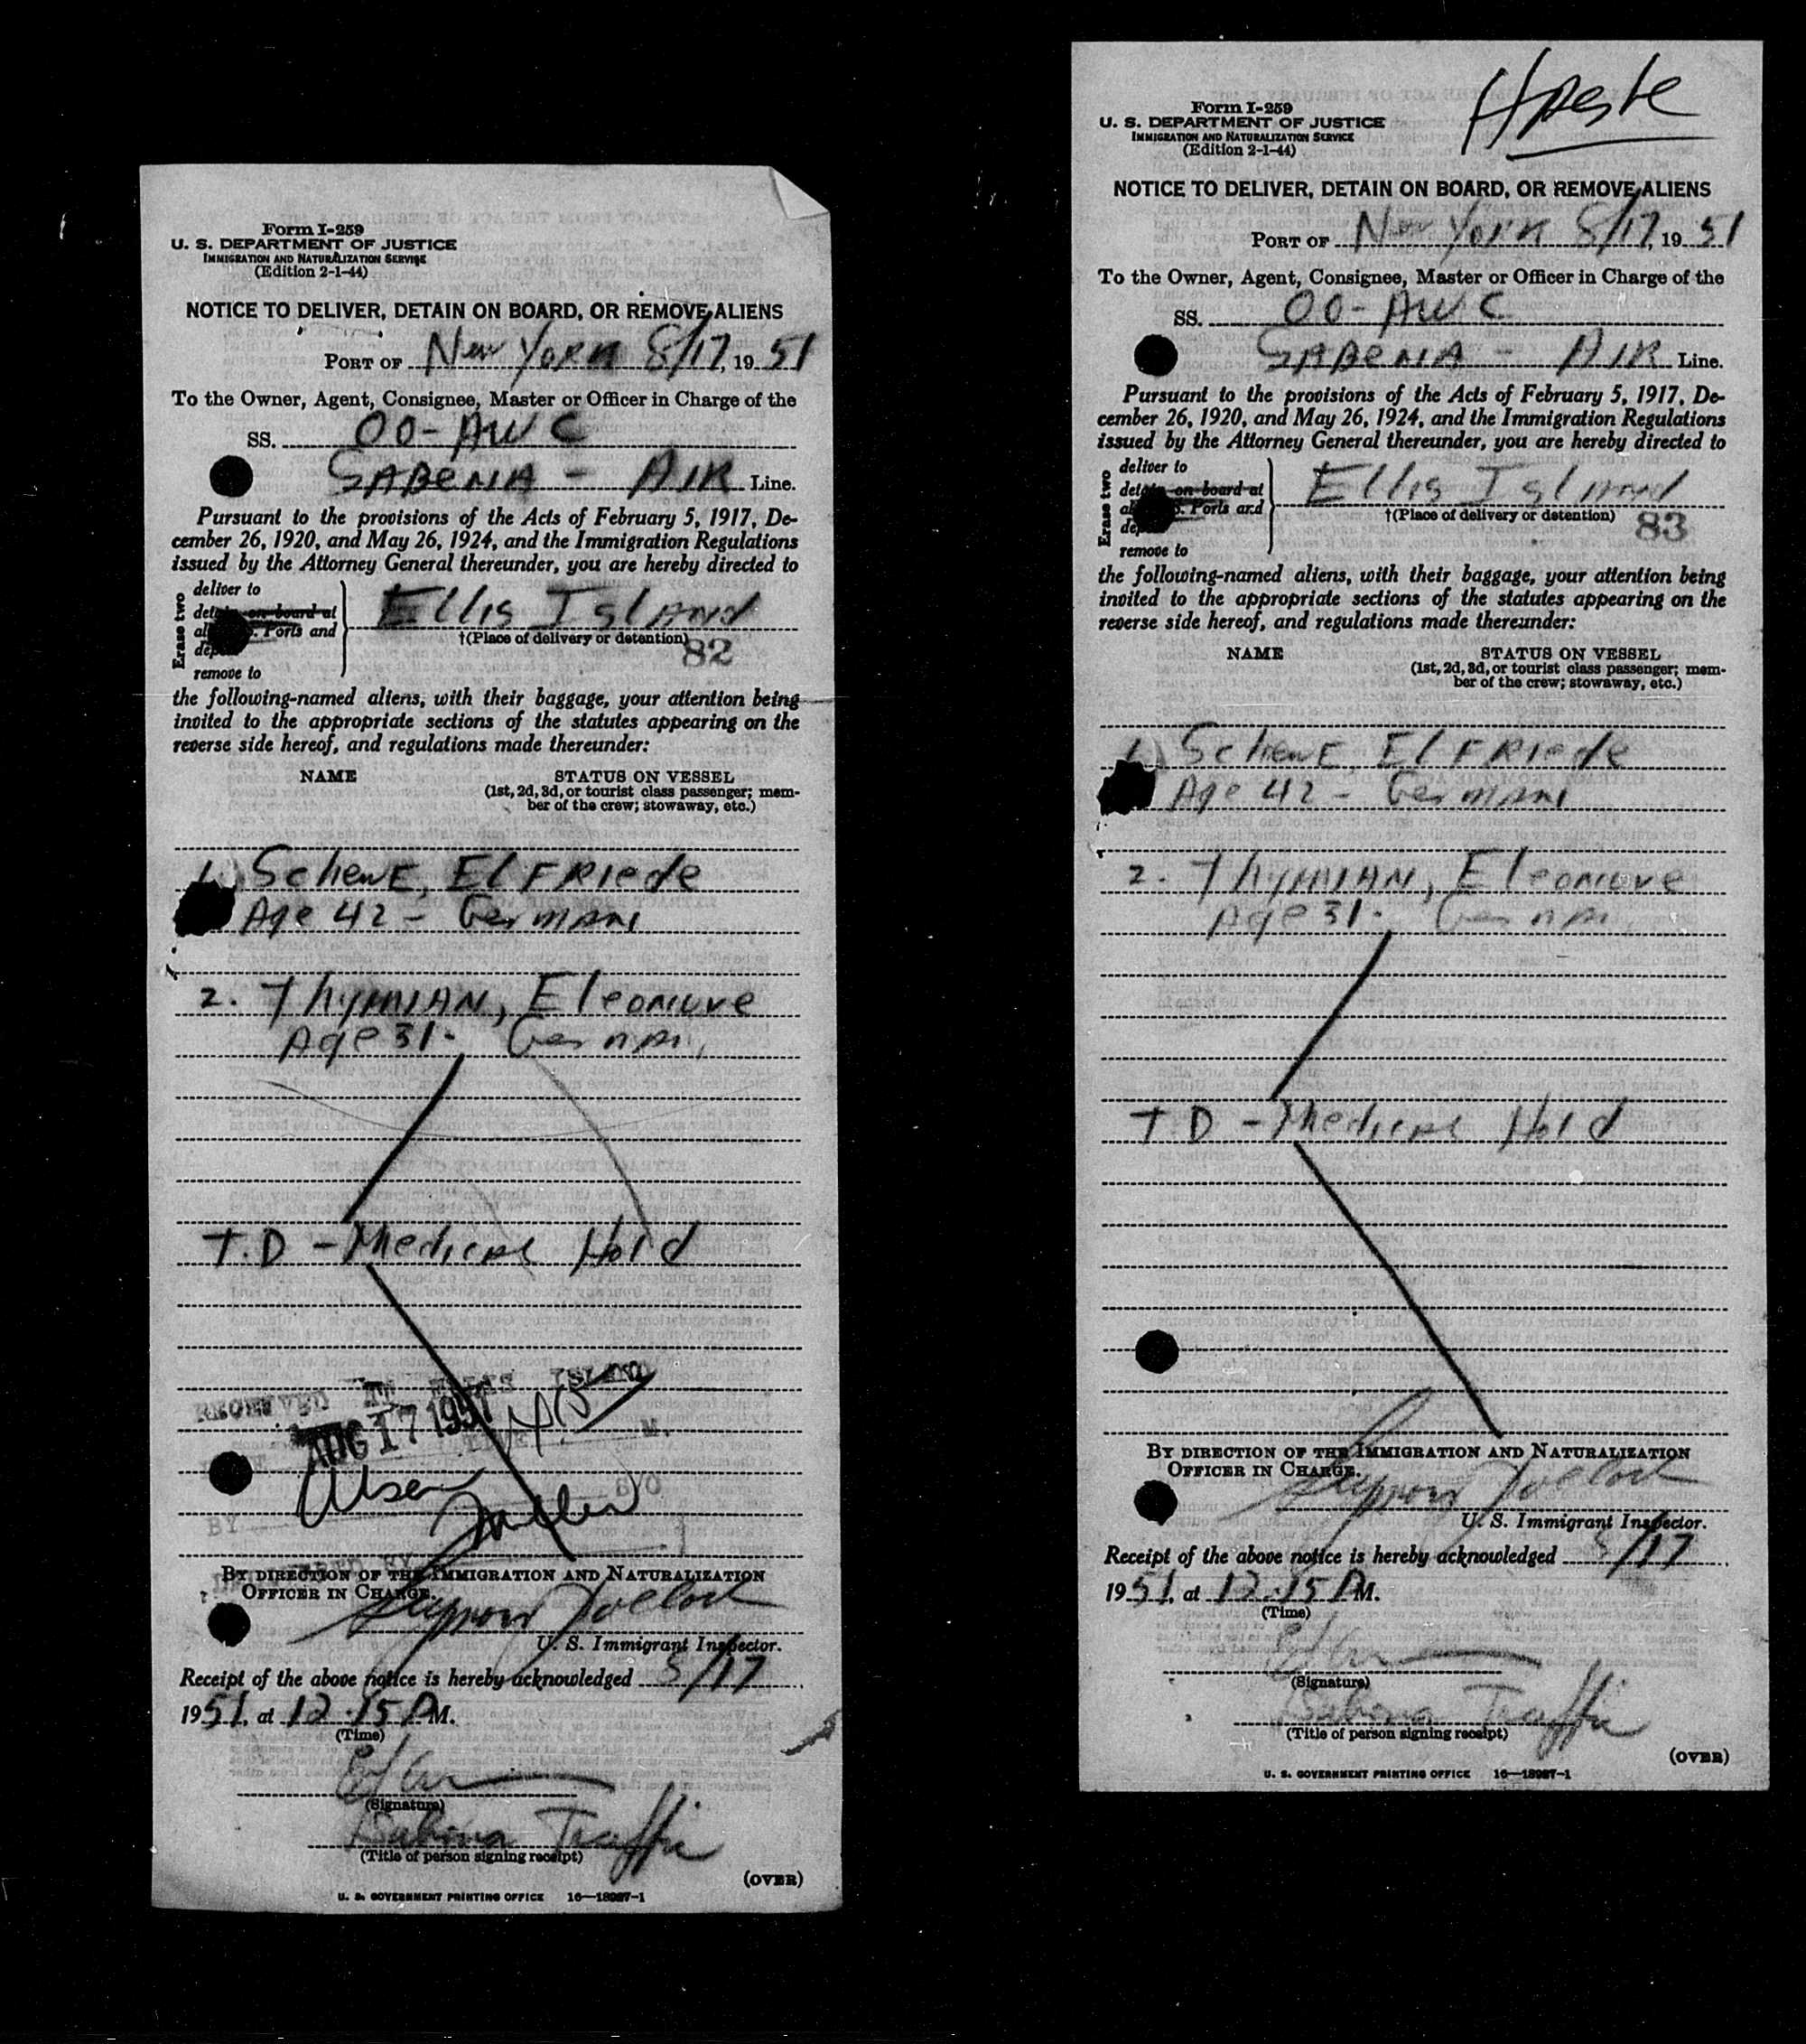 Form I-259
U. S. DEPARTMENT OF JUSTICE
IMMIGRATION AND NATURALIZATION SERVICE
(Edition 2-1-44)
NOTICE TO DELIVER, DETAIN ON BOARD, OR REMOVE ALIENS
PORT OF New York 8/17, 1951
To the Owner, Agent, Consignee, Master or Officer in Charge of the
SS. OO-AWC
SABENA - AIR Line.
Pursuant to the provisions of the Acts of February 5, 1917, De-
cember 26, 1920, and May 26, 1924, and the Immigration Regulations
issued by the Attorney General thereunder, you are hereby directed to
Erase two
deliver to
on board at
Ports and
remove to
Ellis Island
†(Place of delivery or detention)
82
the following-named aliens, with their baggage, your attention being
invited to the appropriate sections of the statutes appearing on the
reverse side hereof, and regulations made thereunder:
NAME STATUS ON VESSEL
(1st, 2d, 3d, or tourist class passenger; mem-
ber of the crew; stowaway, etc.)
1. Schewe, Elfriede
Age 42 - German
2. Thymian, Eleonore
Age 31. German
T.D - Medical Hold
RECEIVED AT ELLIS ISLAND
AUG 17 1951
M.
BY
BY DIRECTION OF THE IMMIGRATION AND NATURALIZATION
OFFICER IN CHARGE.
U. S. Immigrant Inspector.
Receipt of the above notice is hereby acknowledged 8/17
1951, at 12.15 PM.
(Time)
(Signature)
Sabena Traffic
(Title of person signing receipt)
(OVER)
U. S. GOVERNMENT PRINTING OFFICE 16—18987-1
Form I-259
U. S. DEPARTMENT OF JUSTICE
IMMIGRATION AND NATURALIZATION SERVICE
(Edition 2-1-44)
NOTICE TO DELIVER, DETAIN ON BOARD, OR REMOVE ALIENS
PORT OF New York 8/17, 1951
To the Owner, Agent, Consignee, Master or Officer in Charge of the
SS. OO-AWC
SABENA - AIR Line.
Pursuant to the provisions of the Acts of February 5, 1917, De-
cember 26, 1920, and May 26, 1924, and the Immigration Regulations
issued by the Attorney General thereunder, you are hereby directed to
Erase two
deliver to
on board at
Ports and
remove to
Ellis Island
†(Place of delivery or detention)
83
the following-named aliens, with their baggage, your attention being
invited to the appropriate sections of the statutes appearing on the
reverse side hereof, and regulations made thereunder:
NAME STATUS ON VESSEL
(1st, 2d, 3d, or tourist class passenger; mem-
ber of the crew; stowaway, etc.)
1. Schewe, Elfriede
Age 42 - German
2. Thymian, Eleonore
Age 31. German
T.D - Medical Hold
BY DIRECTION OF THE IMMIGRATION AND NATURALIZATION
OFFICER IN CHARGE.
U. S. Immigrant Inspector.
Receipt of the above notice is hereby acknowledged 8/17
1951, at 12.15 PM.
(Time)
(Signature)
Sabena Traffic
(Title of person signing receipt)
(OVER)
U. S. GOVERNMENT PRINTING OFFICE 16—18987-1